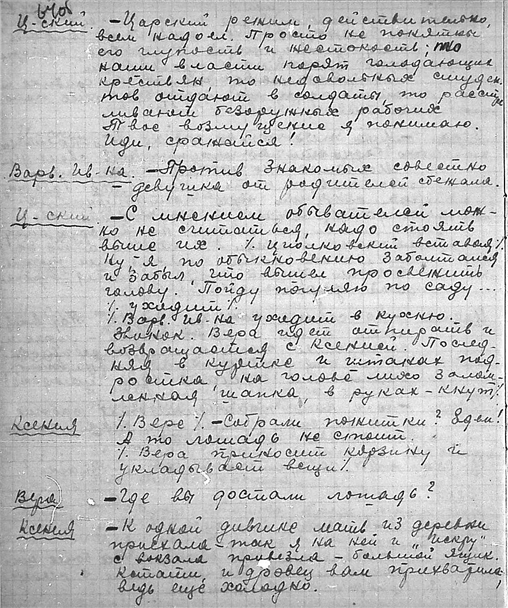 Ц-ский -Царский режим, действительно,
всем надоел. Просто не понятны
его глупость и жестокость; то
наши власти порят голодающих
крестьян то недовольных студен
тов отдают в солдаты то расстре
ливают безоружных рабочих
Твое возмущение я понимаю.
Иди, сражайся!
Варв. Ив-на. -Против знакомых совестно
- девушка от родителей сбежала.
Ц-ский -С мнением обывателей мож-
но не считаться, надо стоять
выше их. % Циолковский вставая %
Ну-я по обыкновению заболтался
и забыл, что вышел просвежить
голову. Пойду погуляю по саду...
% уходит %
% Варв. Ив-на уходит в кухню.
Звонок. Вера идет отпирать и
возвращается с Ксенией. Послед-
няя в куртке и штанах под
ростка на голове лихо залом-
ленная шапка, в руках-кнут %
Ксения % Вере % -Собрали пожитки? Едем!
А то лошадь не стоит.
% Вера приносит корзину и
укладывает вещи %
Вера -Где вы достали лошадь?
Ксения -К одной дивчине мать из деревни
приехала-так я на ней и "Искру"
с вокзала привезла - большой ящик.
Кстати, и дровец вам прихватила,
ведь еще холодно.